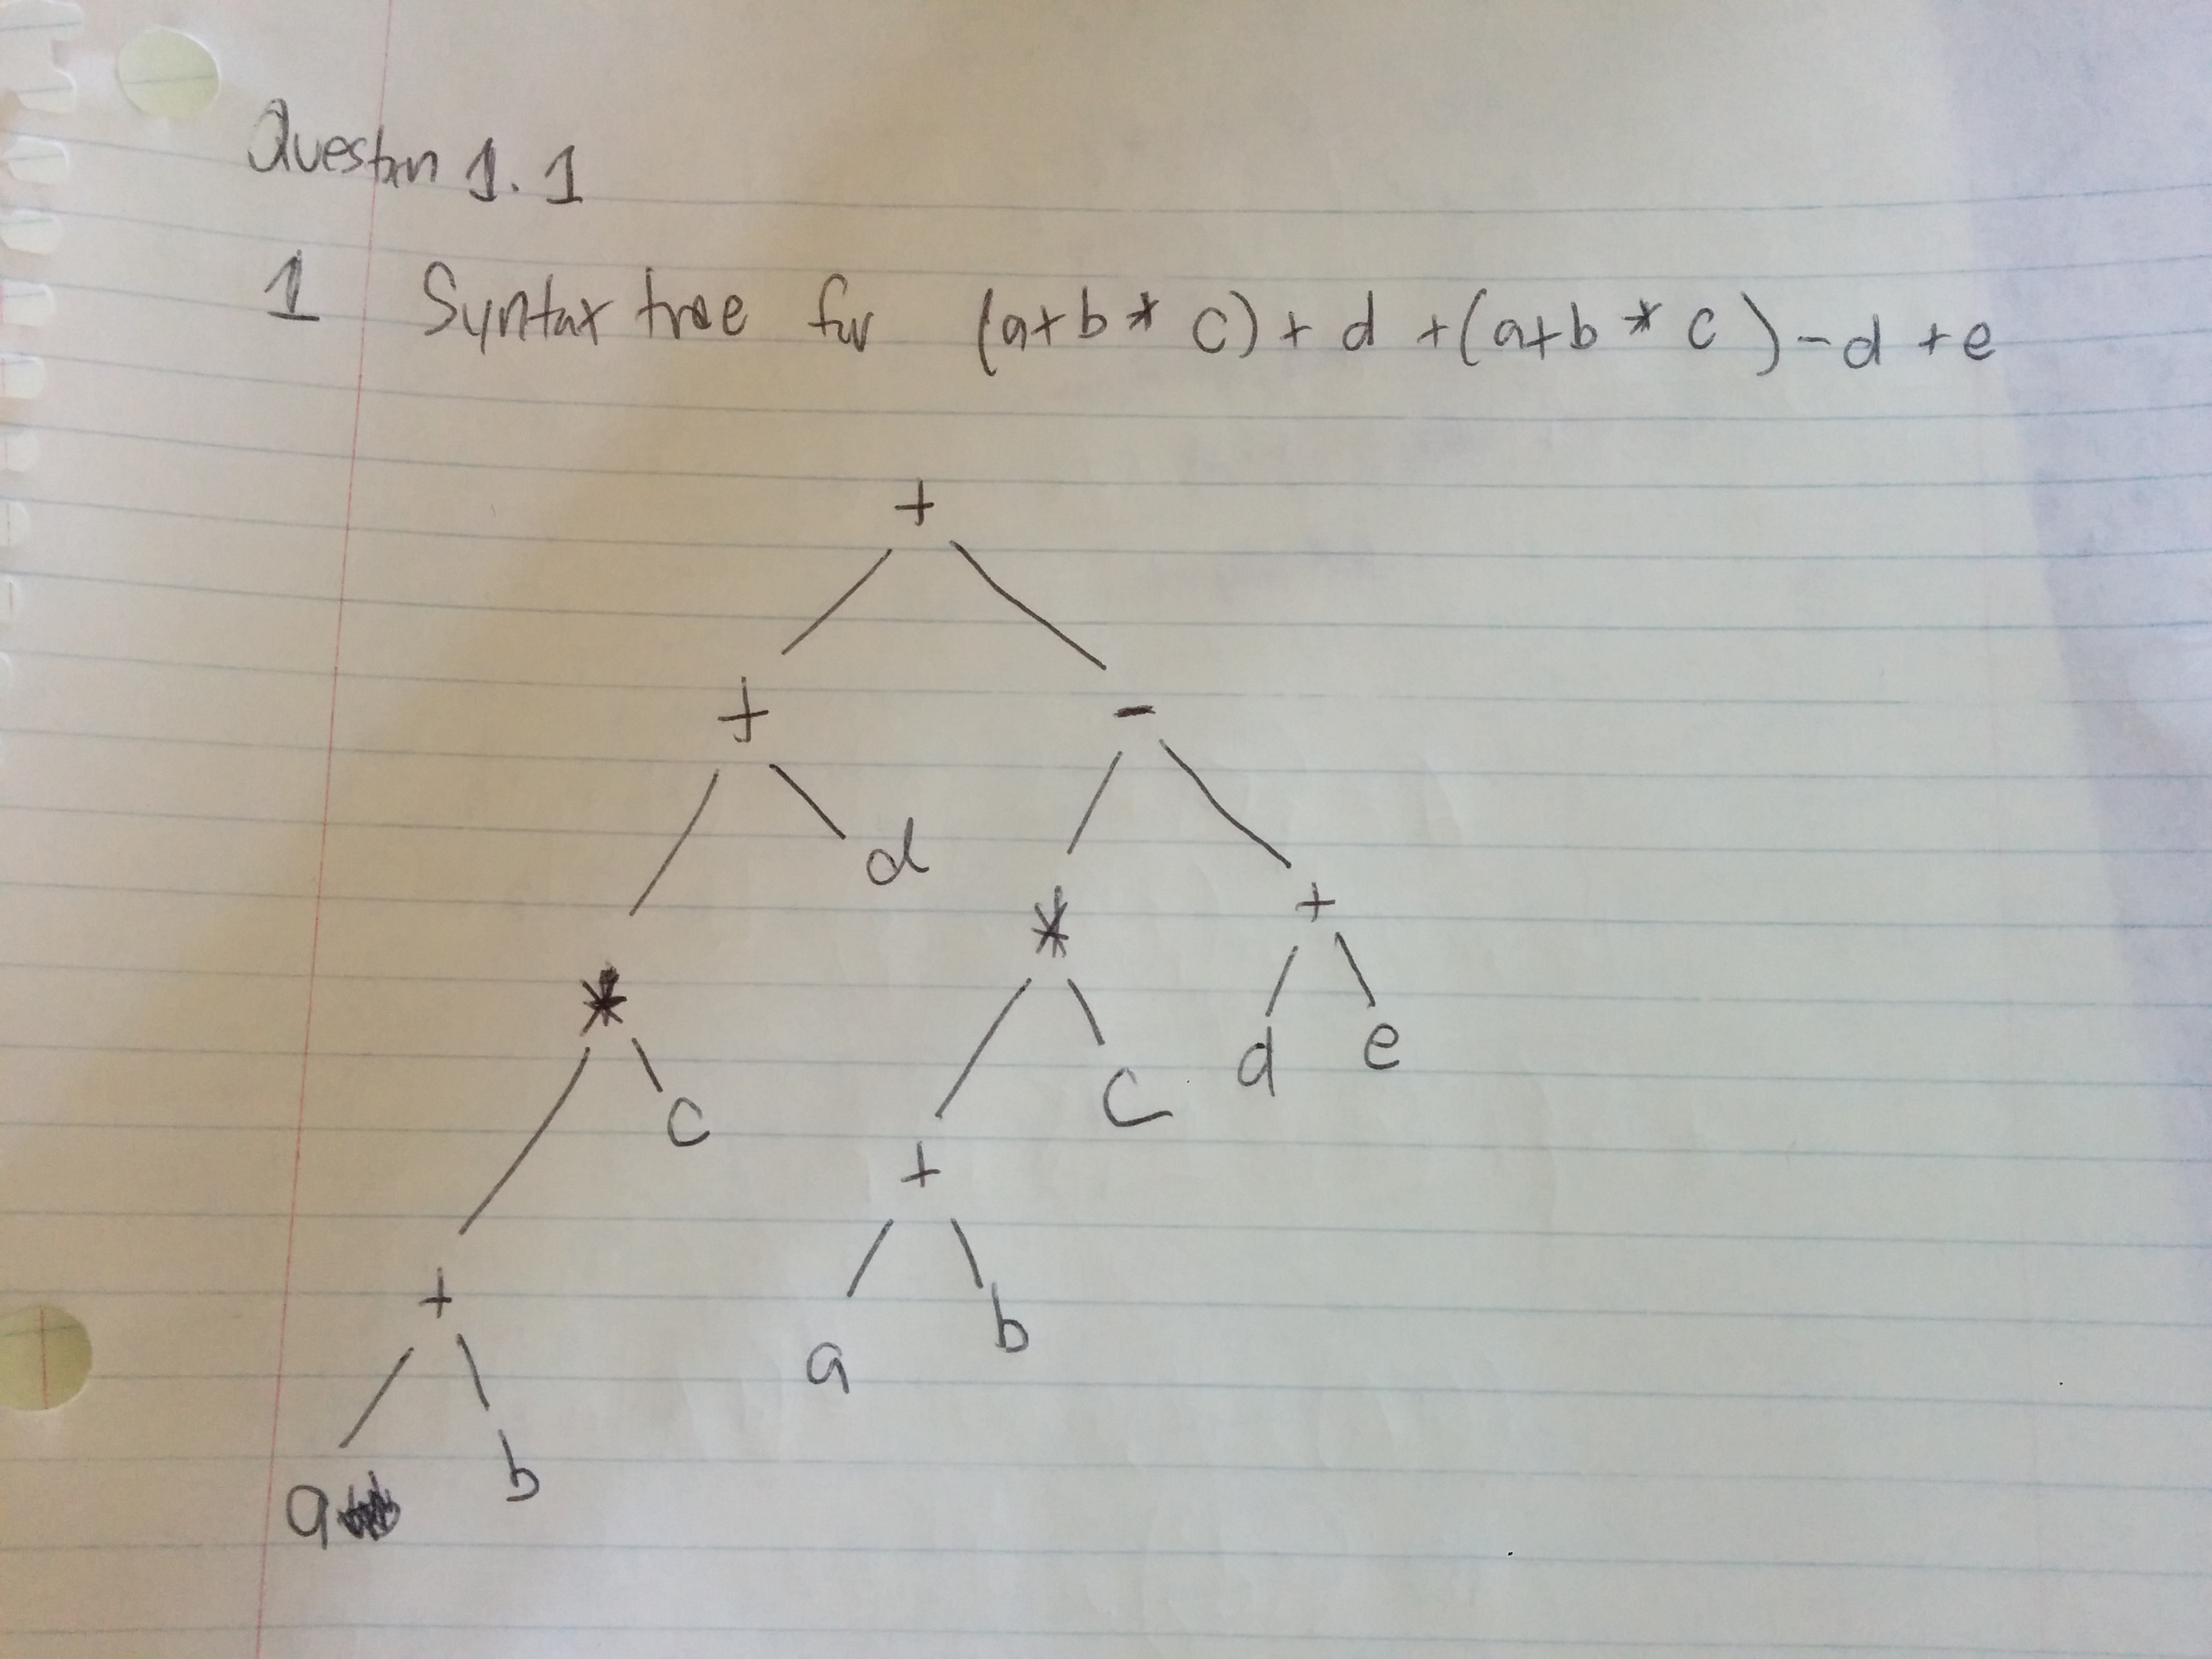 Question 1.1
1 Syntax tree for (a+b * c) + d + (a+b * c) - d + e
+
+ -
d
* +
*
c d e
c
+
+
a b
b
a